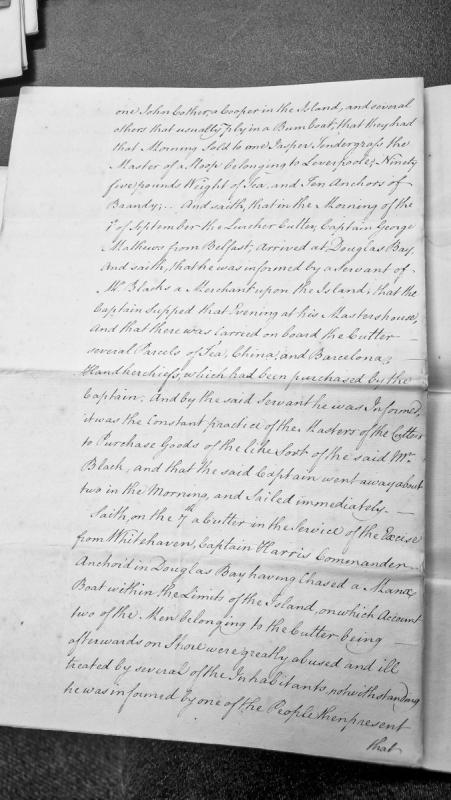 one John Cother, a Cooper in the Island, and several
others that usually ply in a Bumboat, that they had
that Morning Sold to one Jasper Tendergrass the
Master of a Sloop belonging to Leverpoole; Ninety
five pounds Weight of Tea, and Ten Anchors of
Brandy; .. And saith, that in the Morning of the
1st of September the Lurcher Cutter, Captain George
Mathews from Belfast, arrived at Douglas Bay,
And saith, that he was informed by a Servant of
Mr. Blacks a Merchant upon the Island, that the
Captain Supped that Evening at his Masters house,
And that there was Carried on board the Cutter
several Parcels of Tea, China, and Barcelona
Handkerchiefs, which had been purchased by the
Captain. And by the said Servant he was Informed,
it was the Constant practice of the Masters of the Cutters
to Purchase Goods of the like Sort of the said Mr.
Black, and that the said Captain went away about
two in the Morning, and Sailed immediately. —
Saith, on the 7th a Cutter in the Service of the Excise
from Whitehaven, Captain Harris Commander
Anchor'd in Douglas Bay having Chased a Manx
Boat within the Limits of the Island, on which Account
two of the Men belonging to the Cutter being
afterwards on Shore were greatly abused and ill
treated by several of the Inhabitants, notwithstanding
he was informed by one of the People then present
that